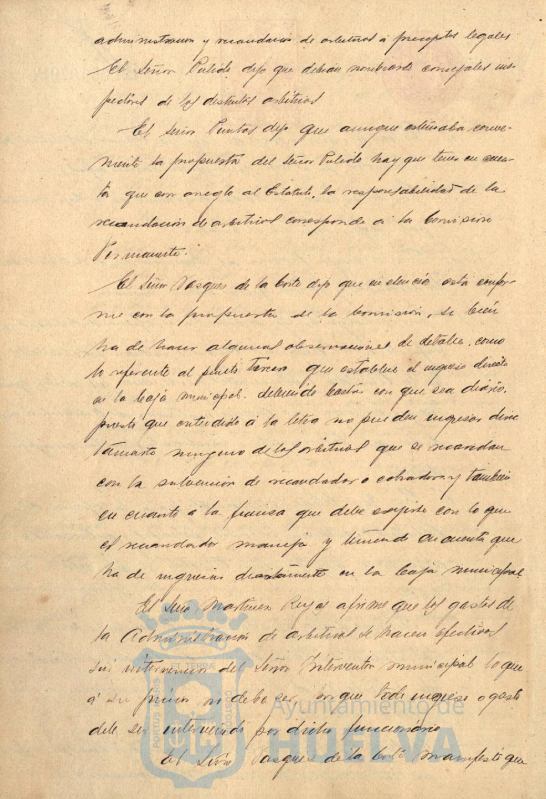 administracion y recaudacion de arbitrios á preceptos legales.
El Señor Pulido, dijo que debian nombrarse concejales ins-
pectores de los distintos arbitrios
El Señor Puntas dijo que aunque estimaba conve-
niente la propuesta del Señor Pulido hay que tener en cuen-
ta que con areglo al Estatuto, la responsabilidad de la
recaudacion de arbitrios corresponde á la Comision
Permanente.
El Señor Vasques de la Corte dijo que en esencia está confor-
me con la propuesta de la Comisión, si bien
ha de hacer algunas observaciones de detalle, como
lo referente al punto tercero que establece el ingreso directo
en la Caja municipal, debiendo bastar con que sea diario,
puesto que entendido á la letra no pueden ingresar direc
tamente ninguno de los arbitrios que se recaudan
con la intervencion de recaudador o cobrador, y tambien
en cuanto á la fianza que debe exigirse con lo que
el recaudador maneja y teniendo en cuenta que
ha de ingresar diariamente en la Caja municipal
El Señor Martinez Reyes afirma que los gastos de
la Administracion de arbitrios se hacen efectivos
sin intervencion del Señor Interventor municipal lo que
á su juicio no debe ser, porque todo ingreso o gasto
debe ser intervenido por dicho funcionario
El Señor Vasques de la Corte manifestó que
Ayuntamiento de
HUELVA